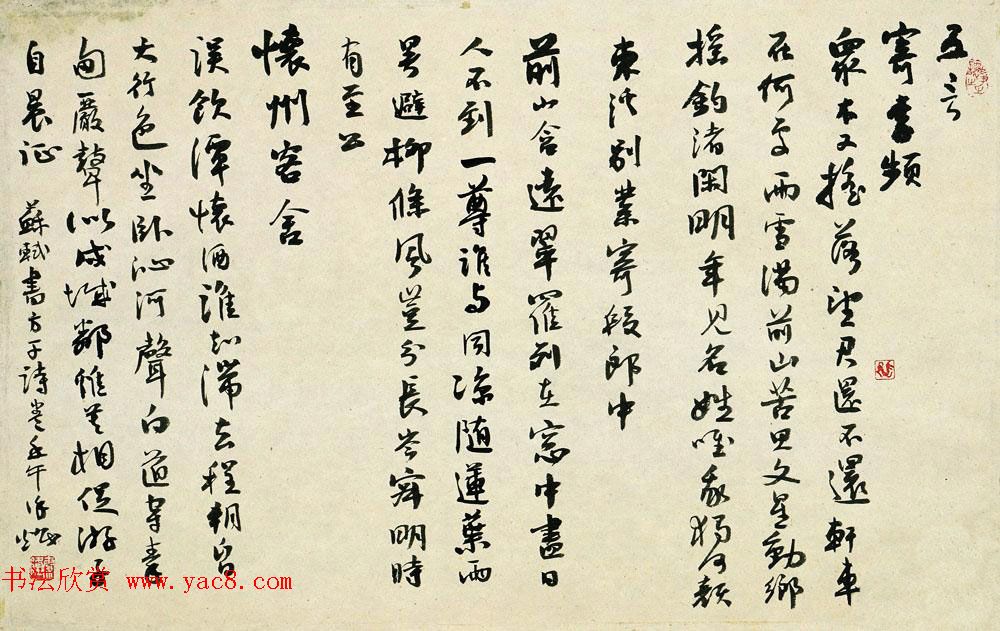 五言
寄李頻
眾木又搖落望君還不還軒車
在何處雨雪滿前山苦思文星動鄉
搖釣渚閑明年見名姓唯我獨何顏
東溪別業寄段郎中
前山含遠翠羅列在窓中盡日
人不到一尊誰与同涼隨蓮葉雨
暑避柳條風豈分長岑寂明時
有至公
懷州客舍
誤飲潭懷酒誰知滯去程朝昏
大行色坐臥沁河聲白道穿秦
甸嚴鼙似戍城鄰雞莫相促游子
自晨征
蘇軾書方干詩卷午
书法欣赏 www.yac8.com